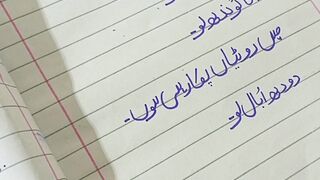 گوندھ لو۔
میں روٹیاں پکا رہی ہوں۔
دودھ ابال لو۔